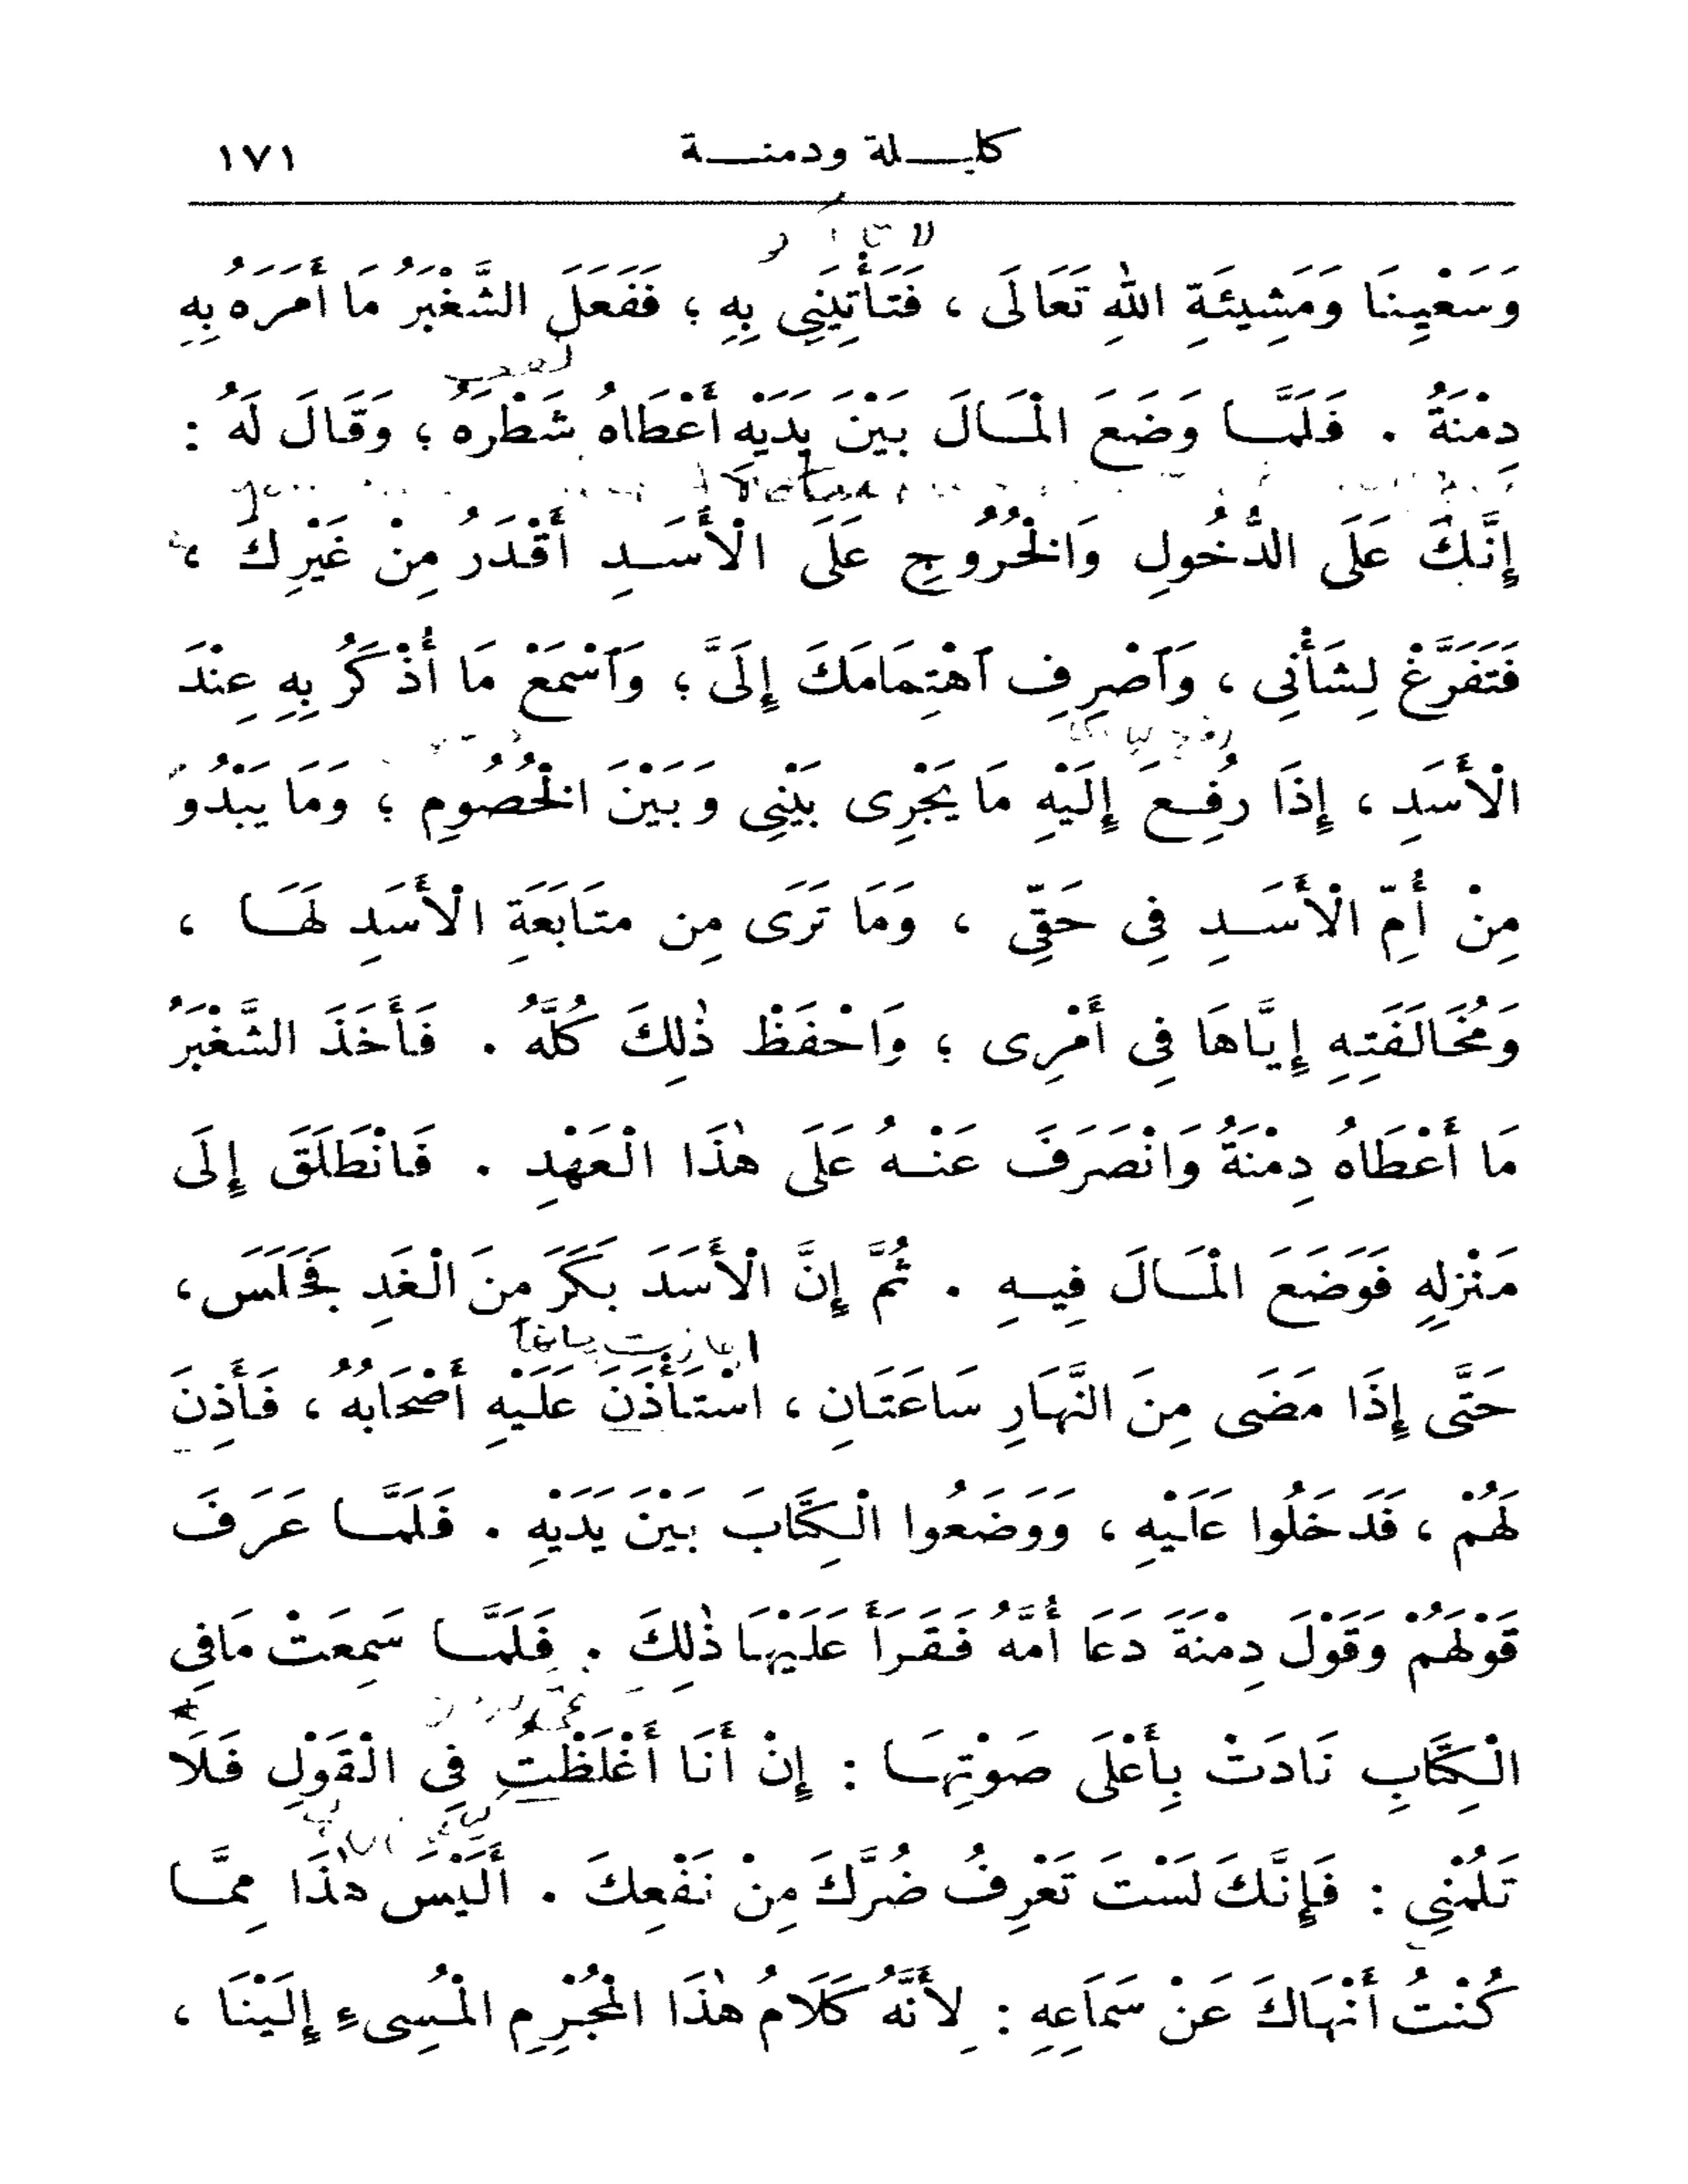 كليلة ودمنة ١٧١
وَسَعْيِنَا وَمَشِيئَةِ اللهِ تَعَالَى ، فَتَأْتِيَنِي بِهِ ؛ فَفَعَلَ الشَّغْبَرُ مَا أَمَرَهُ بِهِ
دِمْنَةُ . فَلَمَّا وَضَعَ الْمَالَ بَيْنَ يَدَيْهِ أَعْطَاهُ شَطْرَهُ ؛ وَقَالَ لَهُ :
إِنَّكَ عَلَى الدُّخُولِ وَالْخُرُوجِ عَلَى الْأَسَدِ أَقْدَرُ مِنْ غَيْرِكَ ؛
فَتَفَرَّغْ لِشَأْنِى ، وَٱصْرِفِ ٱهْتِمَامَكَ إِلَىَّ ؛ وَٱسْمَعْ مَا أُذْكَرُ بِهِ عِنْدَ
الْأَسَدِ ، إِذَا رُفِعَ إِلَيْهِ مَا يَجْرِى بَيْنِى وَبَيْنَ الْخُصُومِ ؛ وَمَا يَبْدُو
مِنْ أُمِّ الْأَسَدِ فِى حَقِّى ، وَمَا تَرَى مِن متَابَعَةِ الْأَسَدِ لَهَا ،
وَمُخَالَفَتِهِ إِيَّاهَا فِى أَمْرِى ؛ وَاحْفَظْ ذٰلِكَ كُلَّهُ . فَأَخَذَ الشَّغْبَرُ
مَا أَعْطَاهُ دِمْنَةُ وَانْصَرَفَ عَنْهُ عَلَى هٰذَا الْعَهْدِ . فَانْطَلَقَ إِلَى
مَنْزِلِهِ فَوَضَعَ الْمَالَ فِيهِ . ثُمَّ إِنَّ الْأَسَدَ بَكَّرَ مِنَ الْغَدِ فَجَلَسَ ،
حَتَّى إِذَا مَضَى مِنَ النَّهَارِ سَاعَتَانِ ، اسْتَأْذَنَ عَلَيْهِ أَصْحَابُهُ ، فَأَذِنَ
لَهُمْ ، فَدَخَلُوا عَلَيْهِ ، وَوَضَعُوا الْكِتَابَ بَيْنَ يَدَيْهِ . فَلَمَّا عَرَفَ
قَوْلَهُمْ وَقَوْلَ دِمْنَةَ دَعَا أُمَّهُ فَقَرَأَ عَلَيْهَا ذٰلِكَ . فَلَمَّا سَمِعَتْ مَا فِى
الْكِتَابِ نَادَتْ بِأَعْلَى صَوْتِهَا : إِنْ أَنَا أَغْلَظْتُ فِى الْقَوْلِ فَلَا
تَلُمْنِى : فَإِنَّكَ لَسْتَ تَعْرِفُ ضُرَّكَ مِنْ نَفْعِكَ . أَلَيْسَ هٰذَا مِمَّا
كُنْتُ أَنْهَاكَ عَنْ سَمَاعِهِ : لِأَنَّهُ كَلَامُ هٰذَا الْمُجْرِمِ الْمُسِىءِ إِلَيْنَا ،